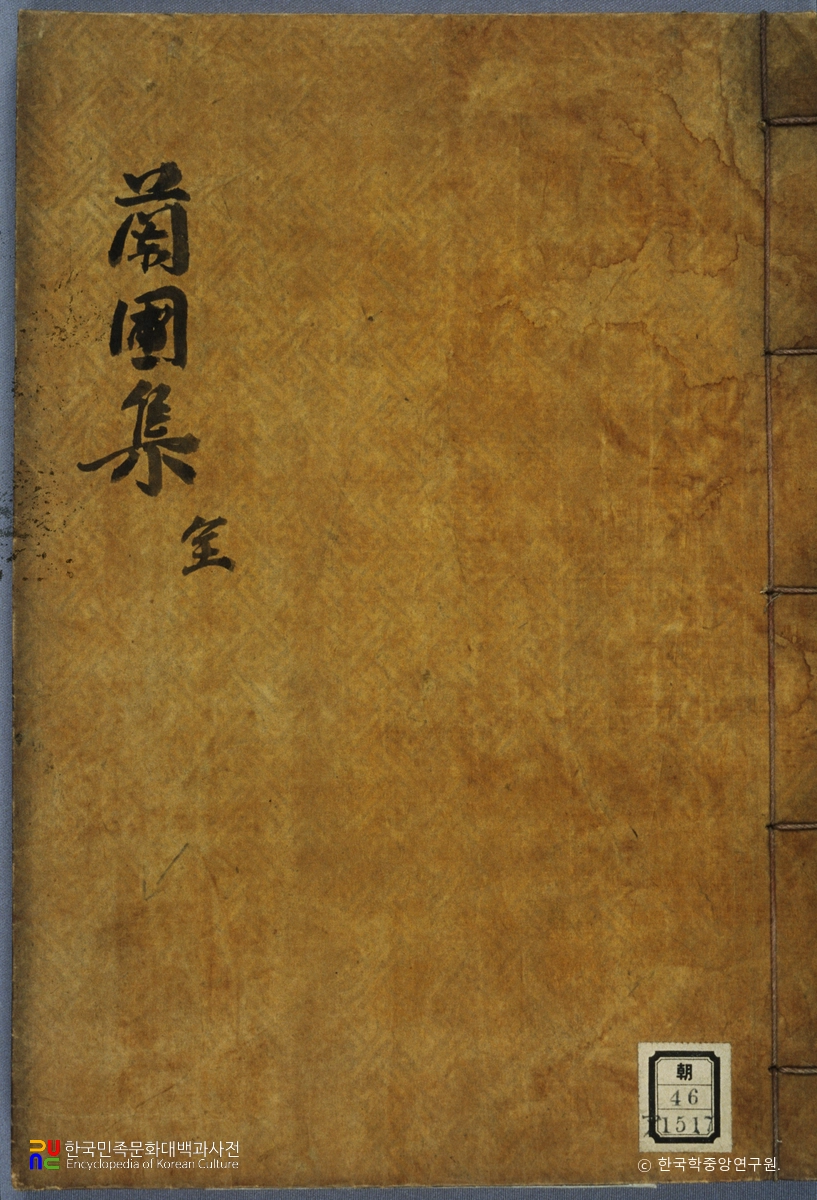 蘭圃集
全
朝
46
1517
한국민족문화대백과사전
Encyclopedia of Korean Culture
ⓒ 한국학중앙연구원.